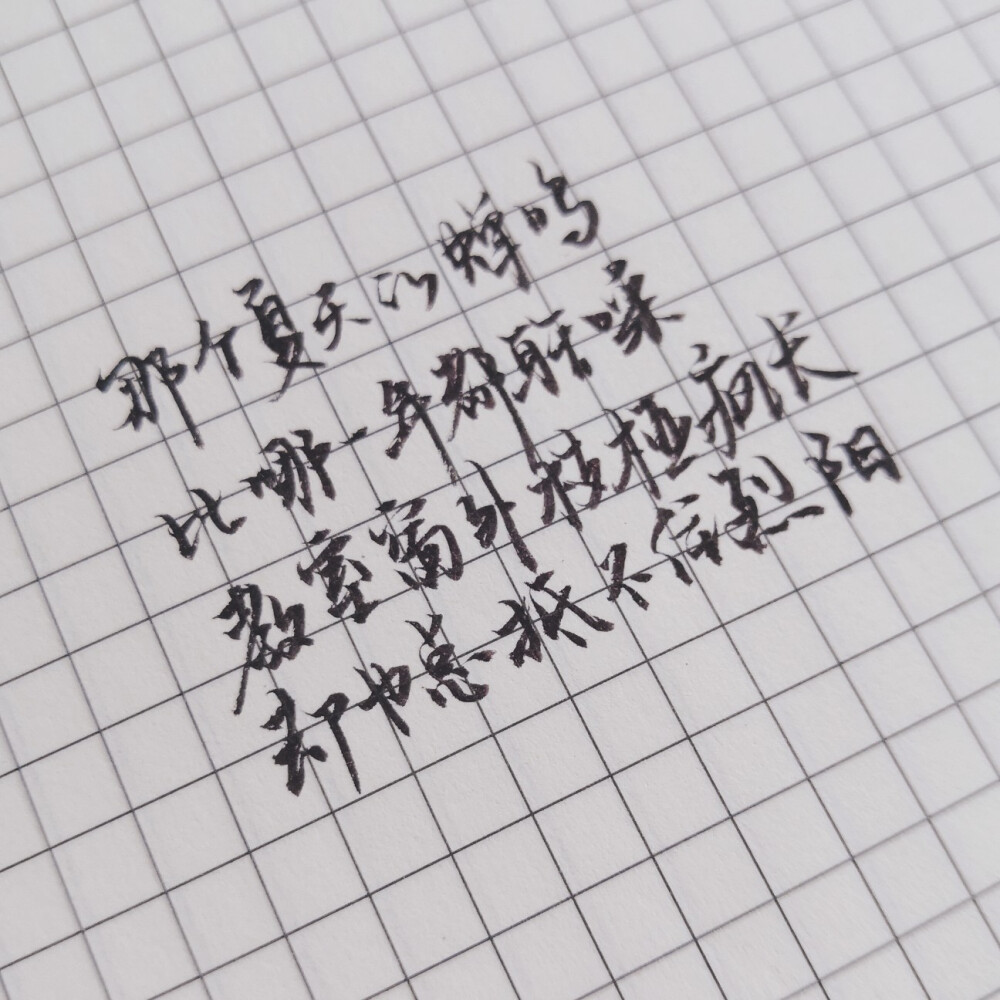 那个夏天的蝉鸣
比哪一年都聒噪
教室窗外枝桠疯长
却也总抵不住烈阳